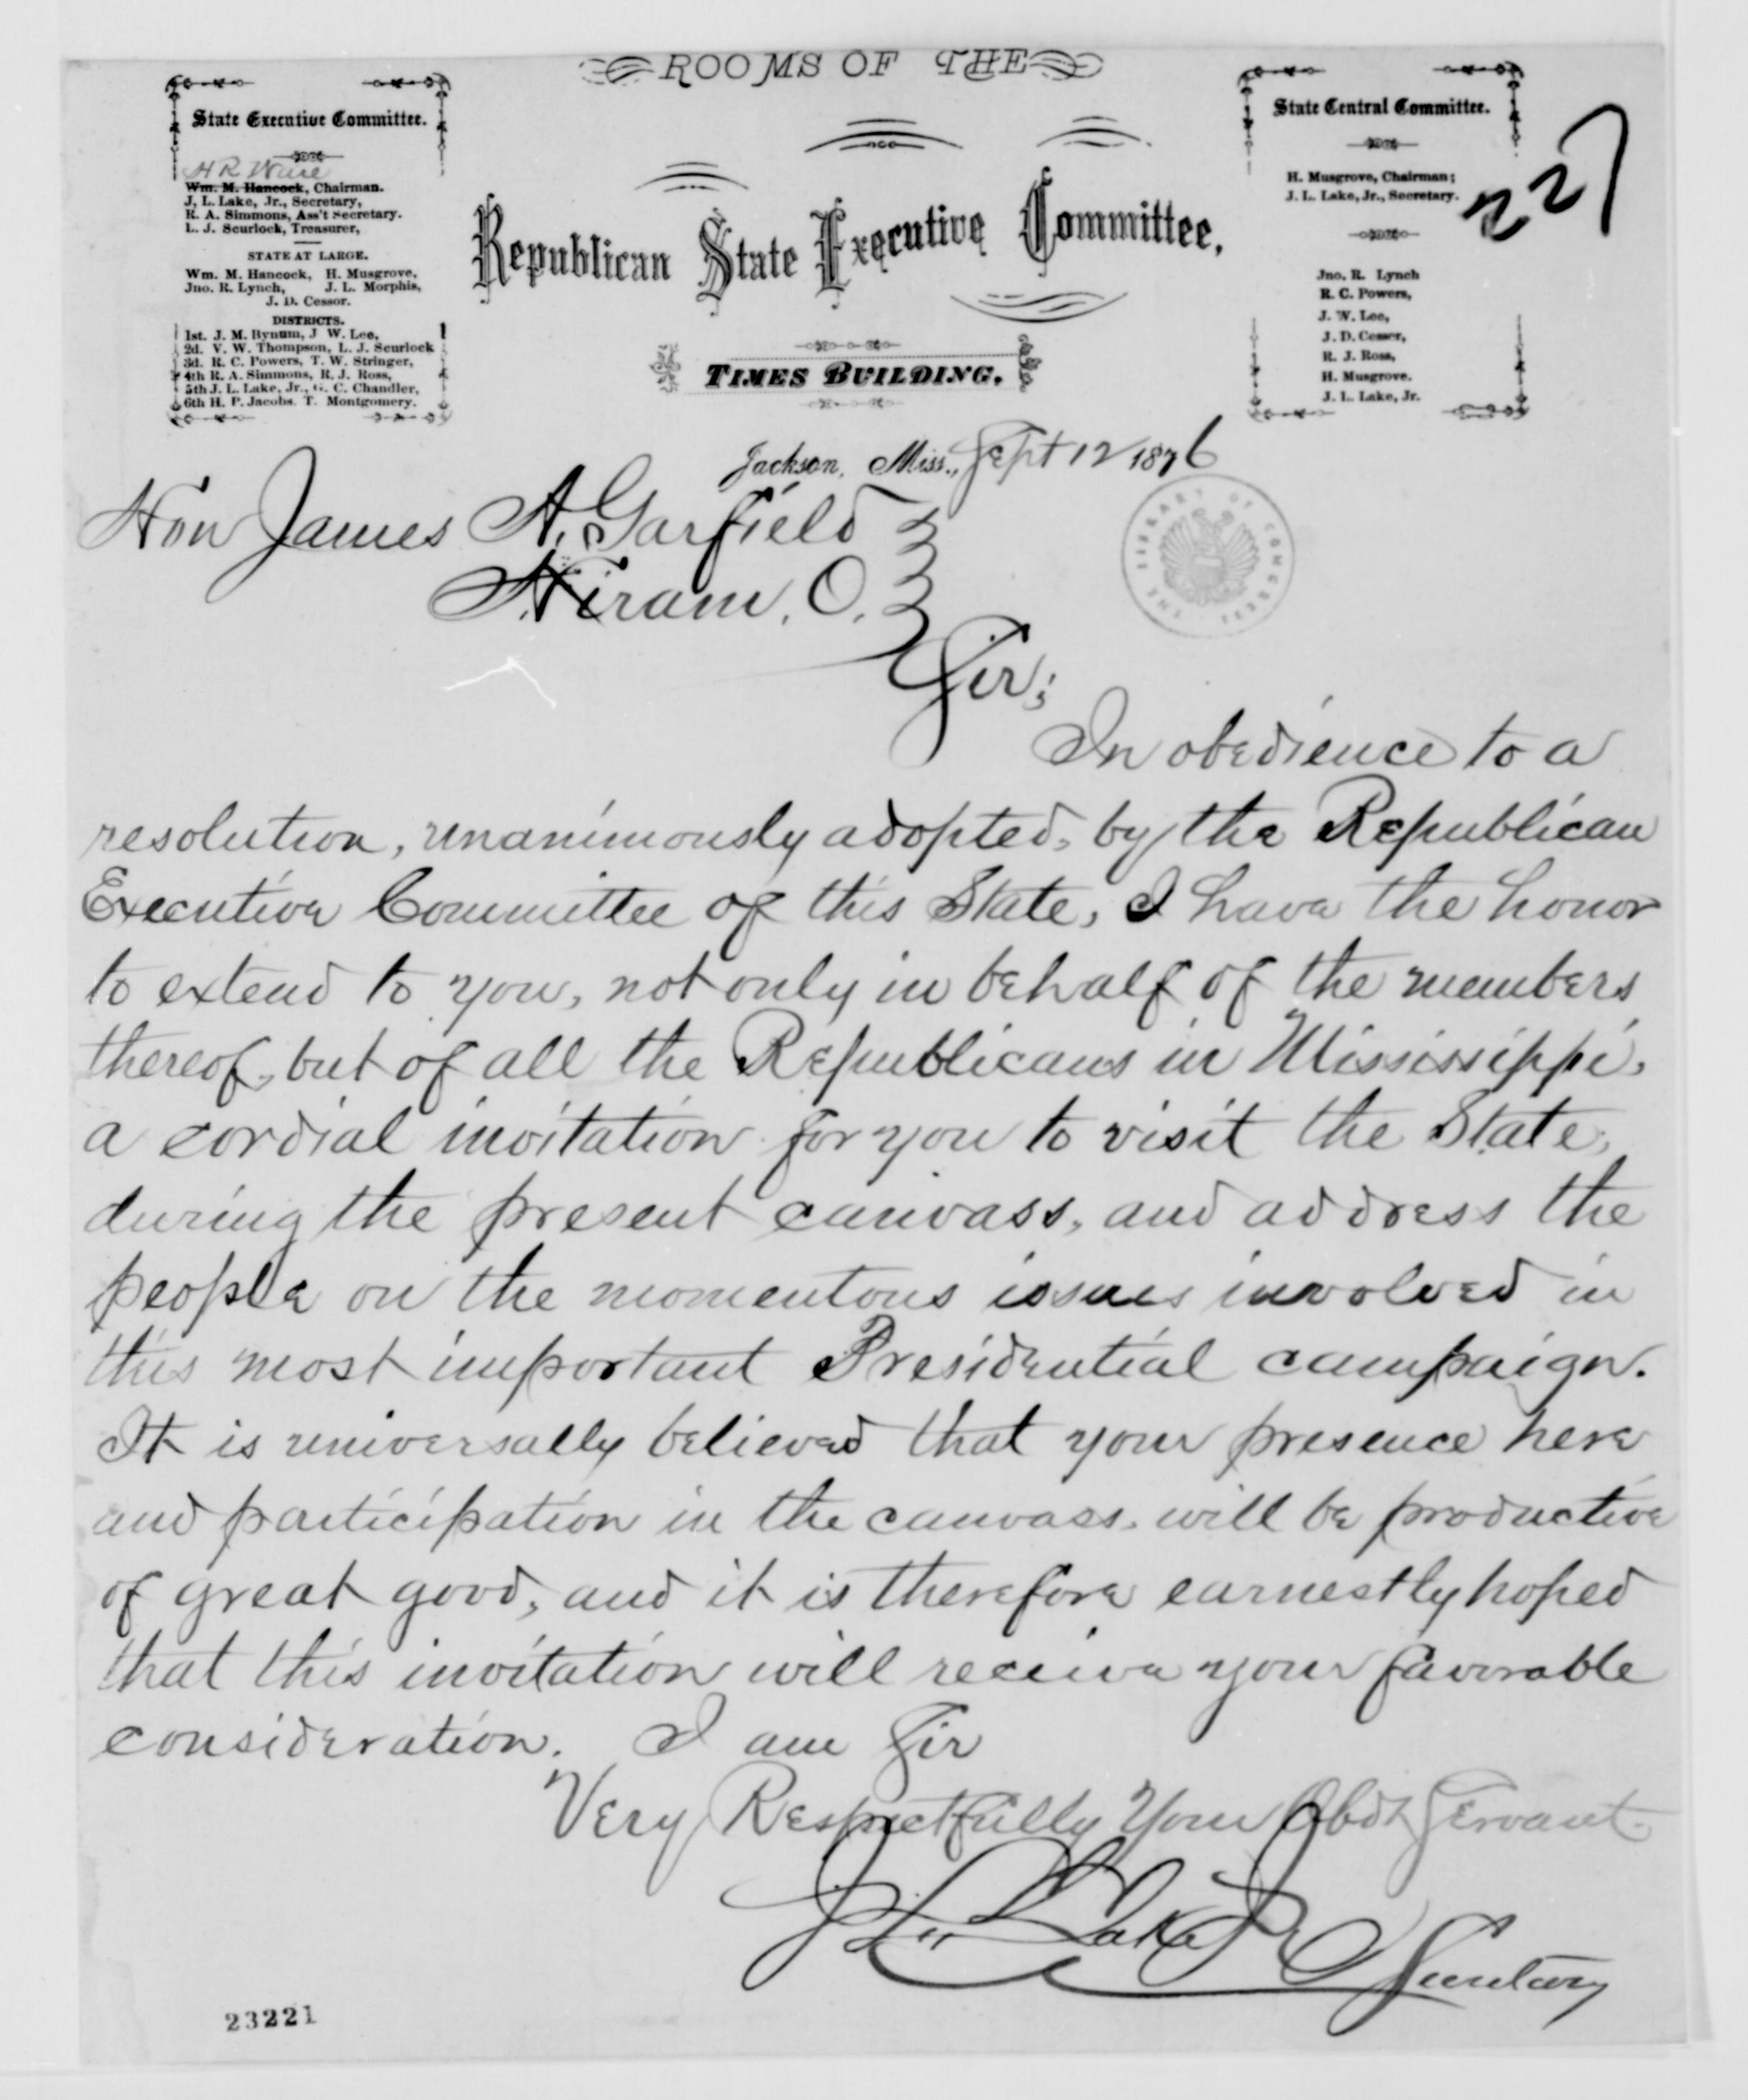 ROOMS OF THE
Republican State Executive Committee,
TIMES BUILDING.
State Executive Committee.
H R Ware
Wm. M. Hancock, Chairman.
J. L. Lake, Jr., Secretary,
R. A. Simmons, Ass't Secretary.
L. J. Scurlock, Treasurer,
STATE AT LARGE.
Wm. M. Hancock, H. Musgrove,
Jno. R. Lynch, J. L. Morphis,
J. D. Cessor.
DISTRICTS.
1st. J. M. Bynum, J W. Lee,
2d. V. W. Thompson, L. J. Scurlock
3d. R. C. Powers, T. W. Stringer,
4th R. A. Simmons, R. J. Ross,
5th J. L. Lake, Jr., G. C. Chandler,
6th H. P. Jacobs. T. Montgomery.
State Central Committee.
H. Musgrove, Chairman;
J. L. Lake, Jr., Secretary.
Jno. R. Lynch
R. C. Powers,
J. W. Lee,
J. D. Cessor,
R. J. Ross,
H. Musgrove.
J. L. Lake, Jr.
227
Jackson, Miss., Sept 12 1876
THE LIBRARY OF CONGRESS
Hon James A. Garfield
Hiram, O.
Sir;
In obedience to a
resolution, unanimously adopted, by the Republican
Executive Committee of this State, I have the honor
to extend to you, not only in behalf of the members
thereof, but of all the Republicans in Mississippi,
a cordial invitation for you to visit the State,
during the present canvass, and address the
people on the momentous issues involved in
this most important Presidential campaign.
It is universally believed that your presence here
and participation in the canvass, will be productive
of great good, and it is therefore earnestly hoped
that this invitation will receive your favorable
consideration. I am Sir
Very Respectfully Your Obdt Servant
J. L. Lake Jr Secretary
23221